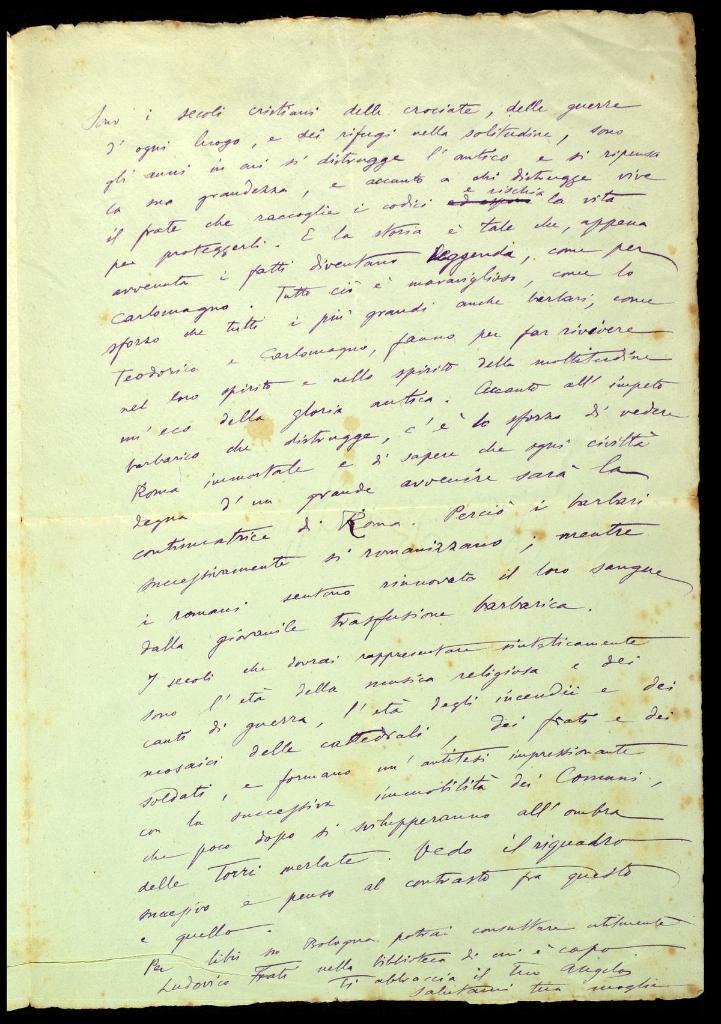 Sono i secoli cristiani delle crociate, delle guerre
d'ogni luogo, e dei rifugi nella solitudine, sono
gli anni in cui si distrugge l'antico e si ripensa
la sua grandezza, e accanto a chi distrugge vive
il frate che raccoglie i codici e rischia la vita
per proteggerli. E la storia è tale che, appena
avvenuti i fatti diventano leggenda, come per
Carlomagno. Tutto ciò è maraviglioso, come lo
sforzo che tutti i più grandi anche barbari, come
Teodorico e Carlomagno, fanno per far rivivere
nel loro spirito e nello spirito della moltitudine
un'eco della gloria antica. Accanto all'impeto
barbarico che distrugge, c'è lo sforzo di vedere
Roma immortale e di sapere che ogni civiltà
degna d'un grande avvenire sarà la
continuatrice di Roma. Perciò i barbari
successivamente si romanizzano, mentre
i romani sentono rinnovato il loro sangue
dalla giovanile trasfusione barbarica.
I secoli che dovrai rappresentare sinteticamente
sono l'età della musica religiosa e dei
canti di guerra, l'età degli incendii e dei
mosaici delle cattedrali, dei frati e dei
soldati, e formano un'antitesi impressionante
con la successiva immobilità dei Comuni,
che poco dopo si svilupperanno all'ombra
delle Torri merlate. Vedo il riquadro
successivo e penso al contrasto fra questo
e quello.
Per libri su Bologna potrai consultare utilmente
Ludovico Frati nella biblioteca di cui è capo.
Ti abbraccia il tuo Angelo
Salutami tua moglie